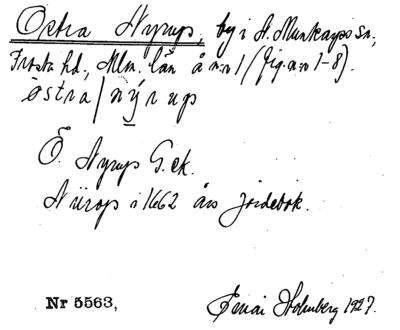 Östra Nyrup, by i Ö. Munkarps sn.,
Frosta hd., Mlm. län å n:o 1 (fig. n:o 1-8).
östra/nýrup
Ö. Nyrup G.ek.
Nürop i 1662 års jordebok.
Nr 5563, Holmberg 1927.